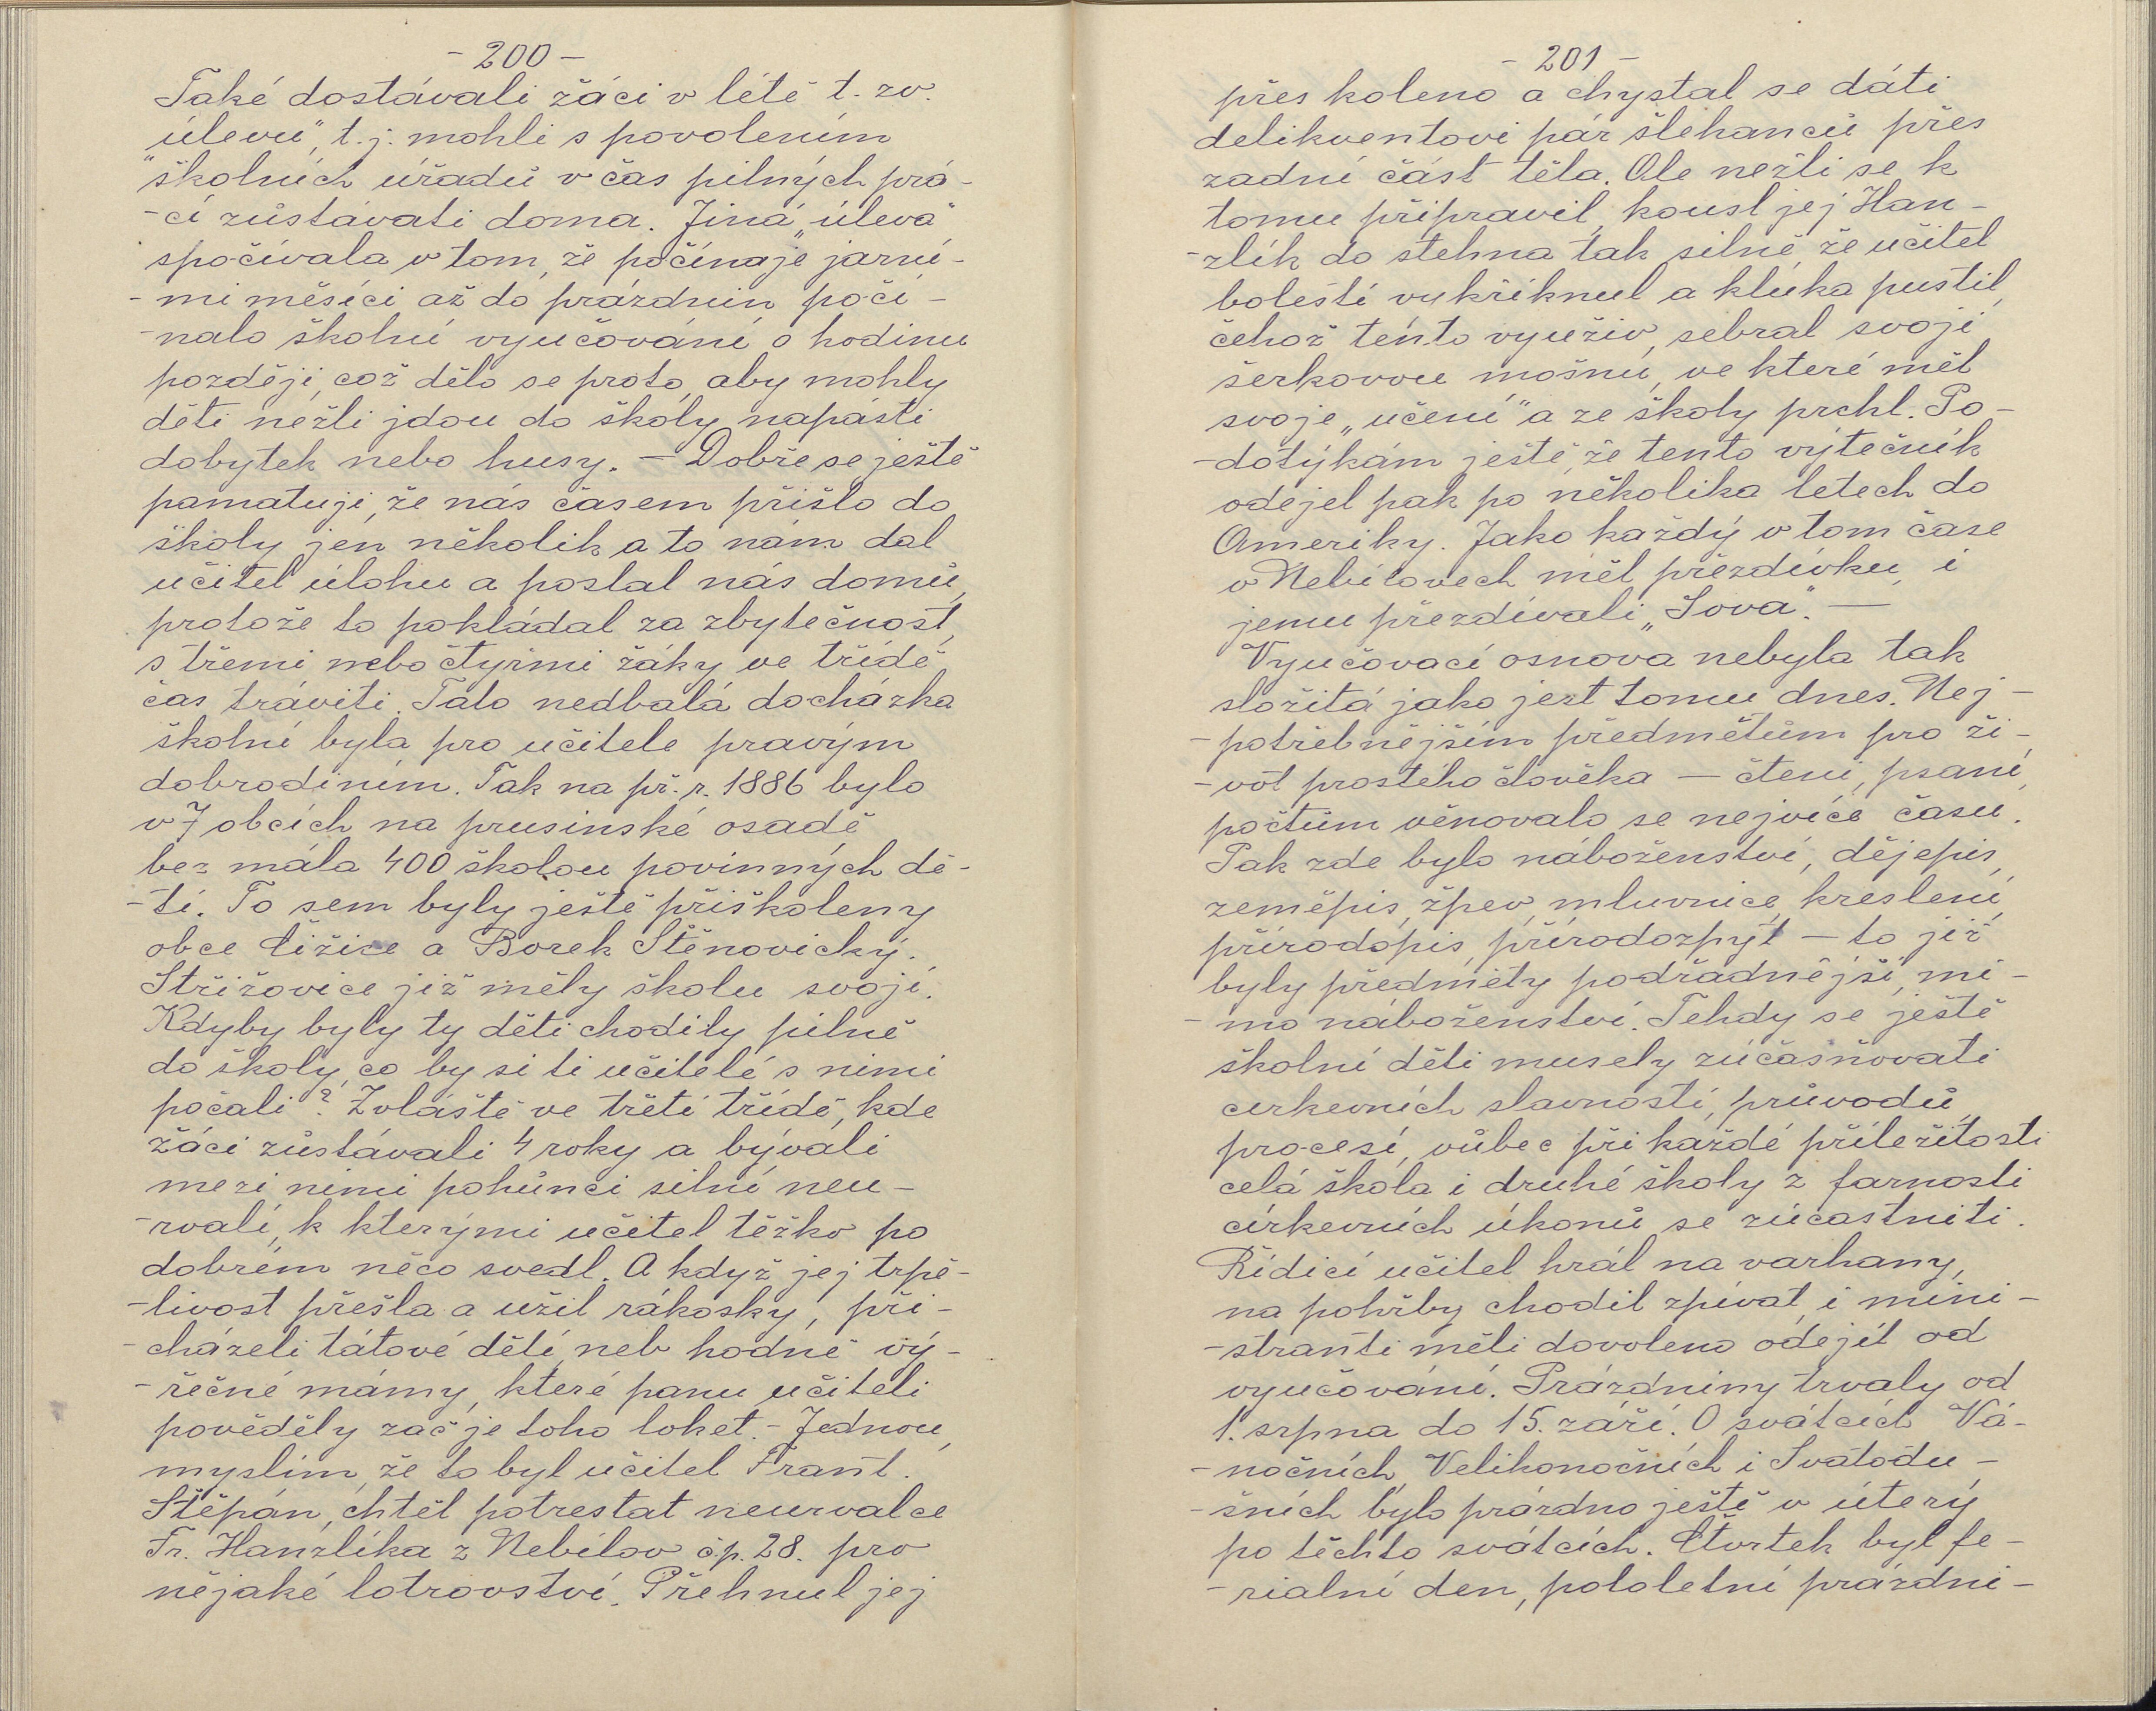 - 200 -
Také dostávali žáci v létě t. zv.
„úlevu", t.j. mohli s povolením
školních úřadů v čas pilných prá-
-cí zůstávati doma. Jiná „úleva"
spočívala v tom, že počínaje jarní-
-mi měsíci až do prázdnin počí-
-nalo školní vyučování o hodinu
později, což dělo se proto, aby mohly
děti nežli jdou do školy napásti
dobytek nebo husy. — Dobře se ještě
pamatuji, že nás časem přišlo do
školy jen několik a to nám dal
učitel úlohu a poslal nás domů,
protože to pokládal za zbytečnost,
s třemi nebo čtyřmi žáky ve třídě
čas tráviti. Tato nedbalá docházka
školní byla pro učitele pravým
dobrodiním. Tak na př. r. 1886 bylo
v 7 obcích na prusinské osadě
bez mála 400 školou povinných dě-
-tí. To sem byly ještě přiškoleny
obce Čižice a Borek Štěnovický.
Střížovice již měly školu svojí.
Kdyby byly ty děti chodily pilně
do školy, co by si ti učitelé s nimi
počali? Zvláště ve třetí třídě, kde
žáci zůstávali 4 roky a bývali
mezi nimi pohůnci silní neu-
-rvalí, k kterými učitel těžko po
dobrém něco svedl. A když jej trpě-
-livost přešla a užil rákosky, při-
-cházeli tátové dětí neb hodně vý-
-řečné mámy, které panu učiteli
pověděly zač je toho loket. - Jednou,
myslím, že to byl učitel Frant.
Štěpán, chtěl potrestat neurvalce
Fr. Hanzlíka z Nebílov čp. 28. pro
nějaké lotrovství. Přehnul jej
- 201 -
přes koleno a chystal se dáti
delikventovi pár šlehanců přes
zadní část těla. Ale nežli se k
tomu připravil, kousl jej Han-
-zlík do stehna tak silně, že učitel
bolestí vykřiknul a klúka pustil,
čehož tento využiv, sebral svoji
šerkovou mošnu, ve které měl
svoje „učení" a ze školy prchl. Po-
-dotýkám ještě, že tento výtečník
odejel pak po několika letech do
Ameriky. Jako každý v tom čase
v Nebílovech měl přezdívku, i
jemu přezdívali „Sova". —
Vyučovací osnova nebyla tak
složitá jako jest tomu dnes. Nej-
-potřebnějším předmětům pro ži-
-vot prostého člověka — čtení, psaní,
počtům věnovalo se nejvíce času.
Pak zde bylo náboženství, dějepis,
zeměpis, zpěv, mluvnice, kreslení,
přírodopis, přírodozpyt — to již
byly předměty podřadnější, mi-
-mo náboženství. Tehdy se ještě
školní děti musely zúčasňovati
církevních slavností, průvodů,
procesí, vůbec při každé příležitosti
celá škola i druhé školy z farnosti
církevních úkonů se zúčastniti.
Řídící učitel hrál na varhany,
na pohřby chodil zpívat, i mini-
-stranti měli dovoleno odejít od
vyučování. Prázdniny trvaly od
1. srpna do 15. září. O svátcích Vá-
-nočních, Velikonočních i Svatodu-
-šních bylo prázdno ještě v úterý
po těchto svátcích. Čtvrtek byl fe-
-rialní den, pololetní prázdni-